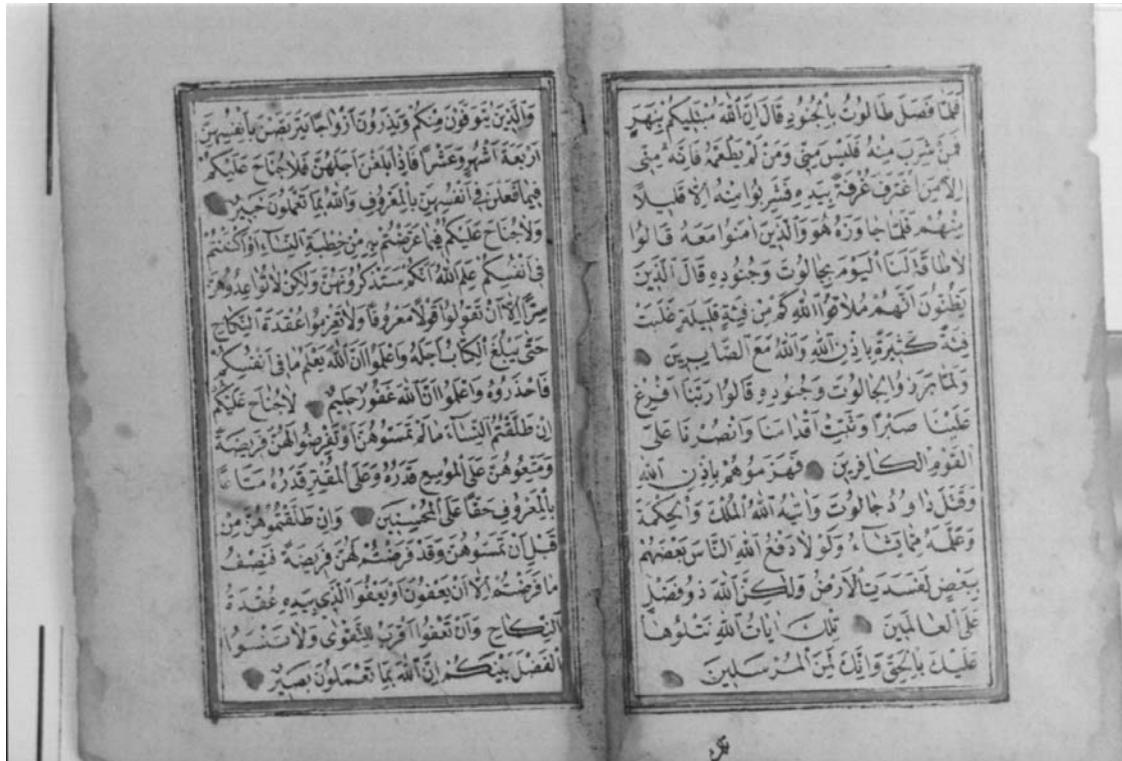 فَلَمَّا فَصَلَ طَالُوتُ بِالْجُنُودِ قَالَ اِنَّ اللّٰهَ مُبْتَلِيكُمْ بِنَهَرٍ
فَمَنْ شَرِبَ مِنْهُ فَلَيْسَ مِنِّى وَمَنْ لَمْ يَطْعَمْهُ فَاِنَّهُ مِنِّى
اِلَّا مَنِ اغْتَرَفَ غُرْفَةً بِيَدِهِ فَشَرِبُوا مِنْهُ اِلَّا قَلِيلًا
مِنْهُمْ فَلَمَّا جَاوَزَهُ هُوَ وَالَّذِينَ اٰمَنُوا مَعَهُ قَالُوا
لَا طَاقَةَ لَنَا الْيَوْمَ بِجَالُوتَ وَجُنُودِهِ قَالَ الَّذِينَ
يَظُنُّونَ اَنَّهُمْ مُلَاقُوا اللّٰهِ كَمْ مِنْ فِئَةٍ قَلِيلَةٍ غَلَبَتْ
فِئَةً كَثِيرَةً بِاِذْنِ اللّٰهِ وَاللّٰهُ مَعَ الصَّابِرِينَ
وَلَمَّا بَرَزُوا لِجَالُوتَ وَجُنُودِهِ قَالُوا رَبَّنَا اَفْرِغْ
عَلَيْنَا صَبْرًا وَثَبِّتْ اَقْدَامَنَا وَانْصُرْنَا عَلَى
الْقَوْمِ الْكَافِرِينَ فَهَزَمُوهُمْ بِاِذْنِ اللّٰهِ
وَقَتَلَ دَاوُدُ جَالُوتَ وَاٰتٰيهُ اللّٰهُ الْمُلْكَ وَالْحِكْمَةَ
وَعَلَّمَهُ مِمَّا يَشَاءُ وَلَوْلَا دَفْعُ اللّٰهِ النَّاسَ بَعْضَهُمْ
بِبَعْضٍ لَفَسَدَتِ الْاَرْضُ وَلٰكِنَّ اللّٰهَ ذُو فَضْلٍ
عَلَى الْعَالَمِينَ تِلْكَ اٰيَاتُ اللّٰهِ نَتْلُوهَا
عَلَيْكَ بِالْحَقِّ وَاِنَّكَ لَمِنَ الْمُرْسَلِينَ
وَالَّذِينَ يُتَوَفَّوْنَ مِنْكُمْ وَيَذَرُونَ اَزْوَاجًا يَتَرَبَّصْنَ بِاَنْفُسِهِنَّ
اَرْبَعَةَ اَشْهُرٍ وَعَشْرًا فَاِذَا بَلَغْنَ اَجَلَهُنَّ فَلَا جُنَاحَ عَلَيْكُمْ
فِيمَا فَعَلْنَ فِى اَنْفُسِهِنَّ بِالْمَعْرُوفِ وَاللّٰهُ بِمَا تَعْمَلُونَ خَبِيرٌ
وَلَا جُنَاحَ عَلَيْكُمْ فِيمَا عَرَّضْتُمْ بِهِ مِنْ خِطْبَةِ النِّسَاءِ اَوْ اَكْنَنْتُمْ
فِى اَنْفُسِكُمْ عَلِمَ اللّٰهُ اَنَّكُمْ سَتَذْكُرُونَهُنَّ وَلٰكِنْ لَا تُوَاعِدُوهُنَّ
سِرًّا اِلَّا اَنْ تَقُولُوا قَوْلًا مَعْرُوفًا وَلَا تَعْزِمُوا عُقْدَةَ النِّكَاحِ
حَتّٰى يَبْلُغَ الْكِتَابُ اَجَلَهُ وَاعْلَمُوا اَنَّ اللّٰهَ يَعْلَمُ مَا فِى اَنْفُسِكُمْ
فَاحْذَرُوهُ وَاعْلَمُوا اَنَّ اللّٰهَ غَفُورٌ حَلِيمٌ لَا جُنَاحَ عَلَيْكُمْ
اِنْ طَلَّقْتُمُ النِّسَاءَ مَا لَمْ تَمَسُّوهُنَّ اَوْ تَفْرِضُوا لَهُنَّ فَرِيضَةً
وَمَتِّعُوهُنَّ عَلَى الْمُوسِعِ قَدَرُهُ وَعَلَى الْمُقْتِرِ قَدَرُهُ مَتَاعًا
بِالْمَعْرُوفِ حَقًّا عَلَى الْمُحْسِنِينَ وَاِنْ طَلَّقْتُمُوهُنَّ مِنْ
قَبْلِ اَنْ تَمَسُّوهُنَّ وَقَدْ فَرَضْتُمْ لَهُنَّ فَرِيضَةً فَنِصْفُ
مَا فَرَضْتُمْ اِلَّا اَنْ يَعْفُونَ اَوْ يَعْفُوَا الَّذِى بِيَدِهِ عُقْدَةُ
النِّكَاحِ وَاَنْ تَعْفُوا اَقْرَبُ لِلتَّقْوٰى وَلَا تَنْسَوُا
الْفَضْلَ بَيْنَكُمْ اِنَّ اللّٰهَ بِمَا تَعْمَلُونَ بَصِيرٌ